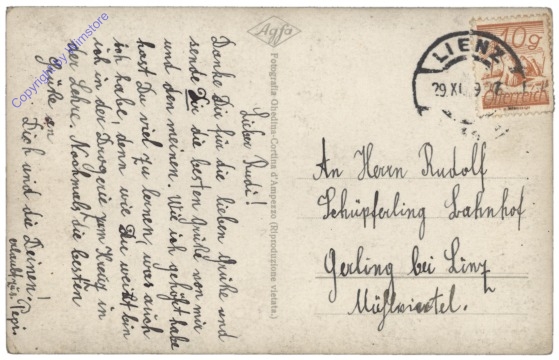 Lieber Rudi!
Danke Dir für die lieben Grüße und
sende Dir die besten Grüße von mir
und den meinen. Wie ich gehört habe
hast Du viel zu lernen, was auch
ich habe, denn wie Du weißt bin
ich in der Drogerie von in
der Lehre. Nochmals die besten
Grüße an
Dich und die Deinen!
Pepi
Agfa
Fotografia Ghedina-Cortina d'Ampezzo (Riproduzione vietata.)
LIENZ
29 XI
10g
Österreich
An Herrn Rudolf
Schüpferling Bahnhof
Gerling bei Linz
Mühlviertel.
Copyright by Ansichtskarten